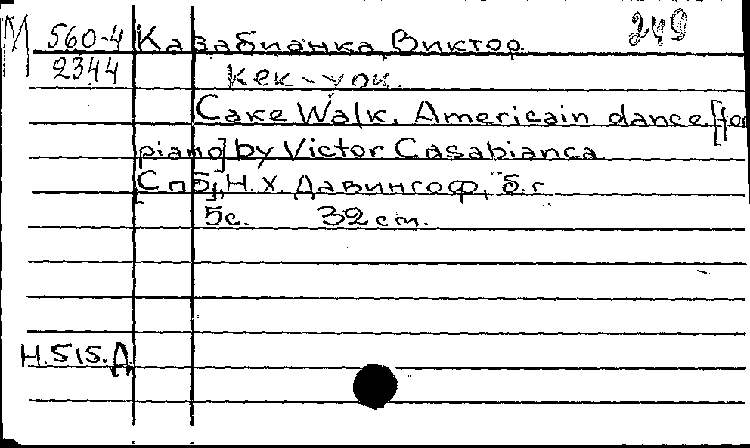 М 560-4 Казабианка, Виктор 249
2344 Кек-уок.
Cake Walk. Americain dance [for
piano] by Victor Casabianca
[Спб], Н. Х. Давингоф, б. г.
5с. 32 cm.
Н.515.Д